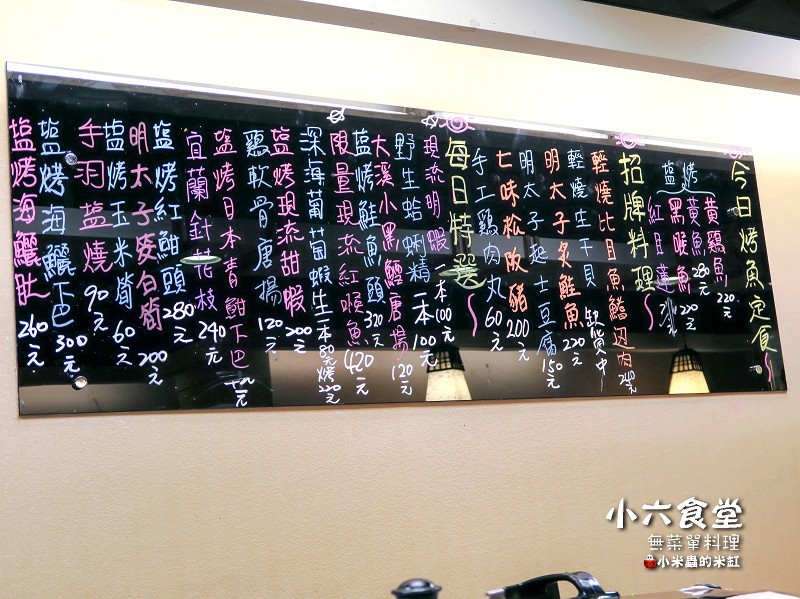 今日烤魚定食
塩烤
黃鷄魚 220元
黃魚 280元
黑喉魚 220元
紅目蓮
招牌料理
輕燒比目魚鰭边肉 240元
輕燒生干貝 缺貨中
明太子炙鮭魚 220元
明太子起士豆腐 150元
七味松阪豬 200元
手工鷄肉丸 60元
每日特選
現流明蝦 一本100元
野生蛤蜊精 一本100元
大溪小黑鱈唐揚 120元
塩烤鮭魚頭 320元
限量現流紅喉魚 420元
深海葡萄蝦生一本80元烤220元
塩烤現流甜蝦 200元
鷄軟骨唐揚 120元
塩烤日本青魽下巴 元
宜蘭針花枝 240元
塩烤紅魽頭 280元
明太子筊白筍 200元
塩烤玉米筍 60元
手羽塩燒 90元
塩烤海鱺下巴 300元
塩烤海鱺肚 260元
小六食堂
無菜單料理
小米蟲的米缸